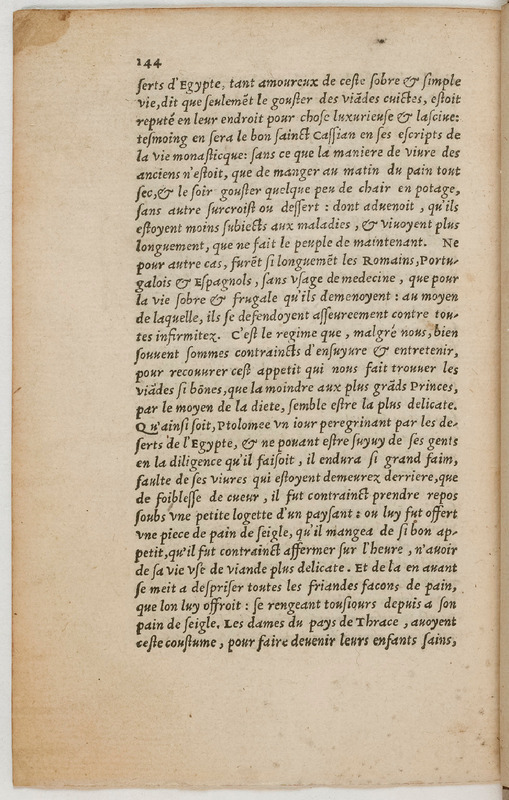 144
ſerts d'Egypte, tant amoureux de ceſte ſobre & ſimple
vie, dit que ſeulemẽt le gouſter des viãdes cuictes, eſtoit
reputé en leur endroit pour choſe luxurieuſe & laſciue:
teſmoing en ſera le bon ſainct Caſſian en ſes eſcripts de
la vie monaſticque: ſans ce que la maniere de viure des
anciens n'eſtoit, que de manger au matin du pain tout
ſec, & le ſoir gouſter quelque peu de chair en potage,
ſans autre ſurcroiſt ou deſſert : dont aduenoit, qu'ils
eſtoyent moins ſubiects aux maladies, & viuoyent plus
longuement, que ne fait le peuple de maintenant. Ne
pour autre cas, furẽt ſi longuemẽt les Romains, Portu-
galois & Eſpagnols, ſans vſage de medecine, que pour
la vie ſobre & frugale qu'ils demenoyent : au moyen
de laquelle, ils ſe defendoyent aſſeureement contre tou-
tes infirmitez. C'eſt le regime que, malgré nous, bien
ſouuent ſommes contraincts d'enſuyure & entretenir,
pour recouurer ceſt appetit qui nous fait trouuer les
viãdes ſi bõnes, que la moindre aux plus grãds Princes,
par le moyen de la diete, ſemble eſtre la plus delicate.
Qu'ainſi ſoit, Ptolomee vn iour peregrinant par les de-
ſerts de l'Egypte, & ne pouant eſtre ſuyuy de ſes gents
en la diligence qu'il faiſoit, il endura ſi grand faim,
faulte de ſes viures qui eſtoyent demeurez derriere, que
de foibleſſe de cueur, il fut contrainct prendre repos
ſoubs vne petite logette d'un payſant : ou luy fut offert
vne piece de pain de ſeigle, qu'il mangea de ſi bon ap-
petit, qu'il fut contrainct affermer ſur l'heure, n'auoir
de ſa vie vſe de viande plus delicate. Et de la en auant
ſe meit a deſpriſer toutes les friandes facons de pain,
que lon luy offroit : ſe rengeant touſiours depuis a ſon
pain de ſeigle. Les dames du pays de Thrace, auoyent
ceſte couſtume, pour faire deuenir leurs enfants ſains,